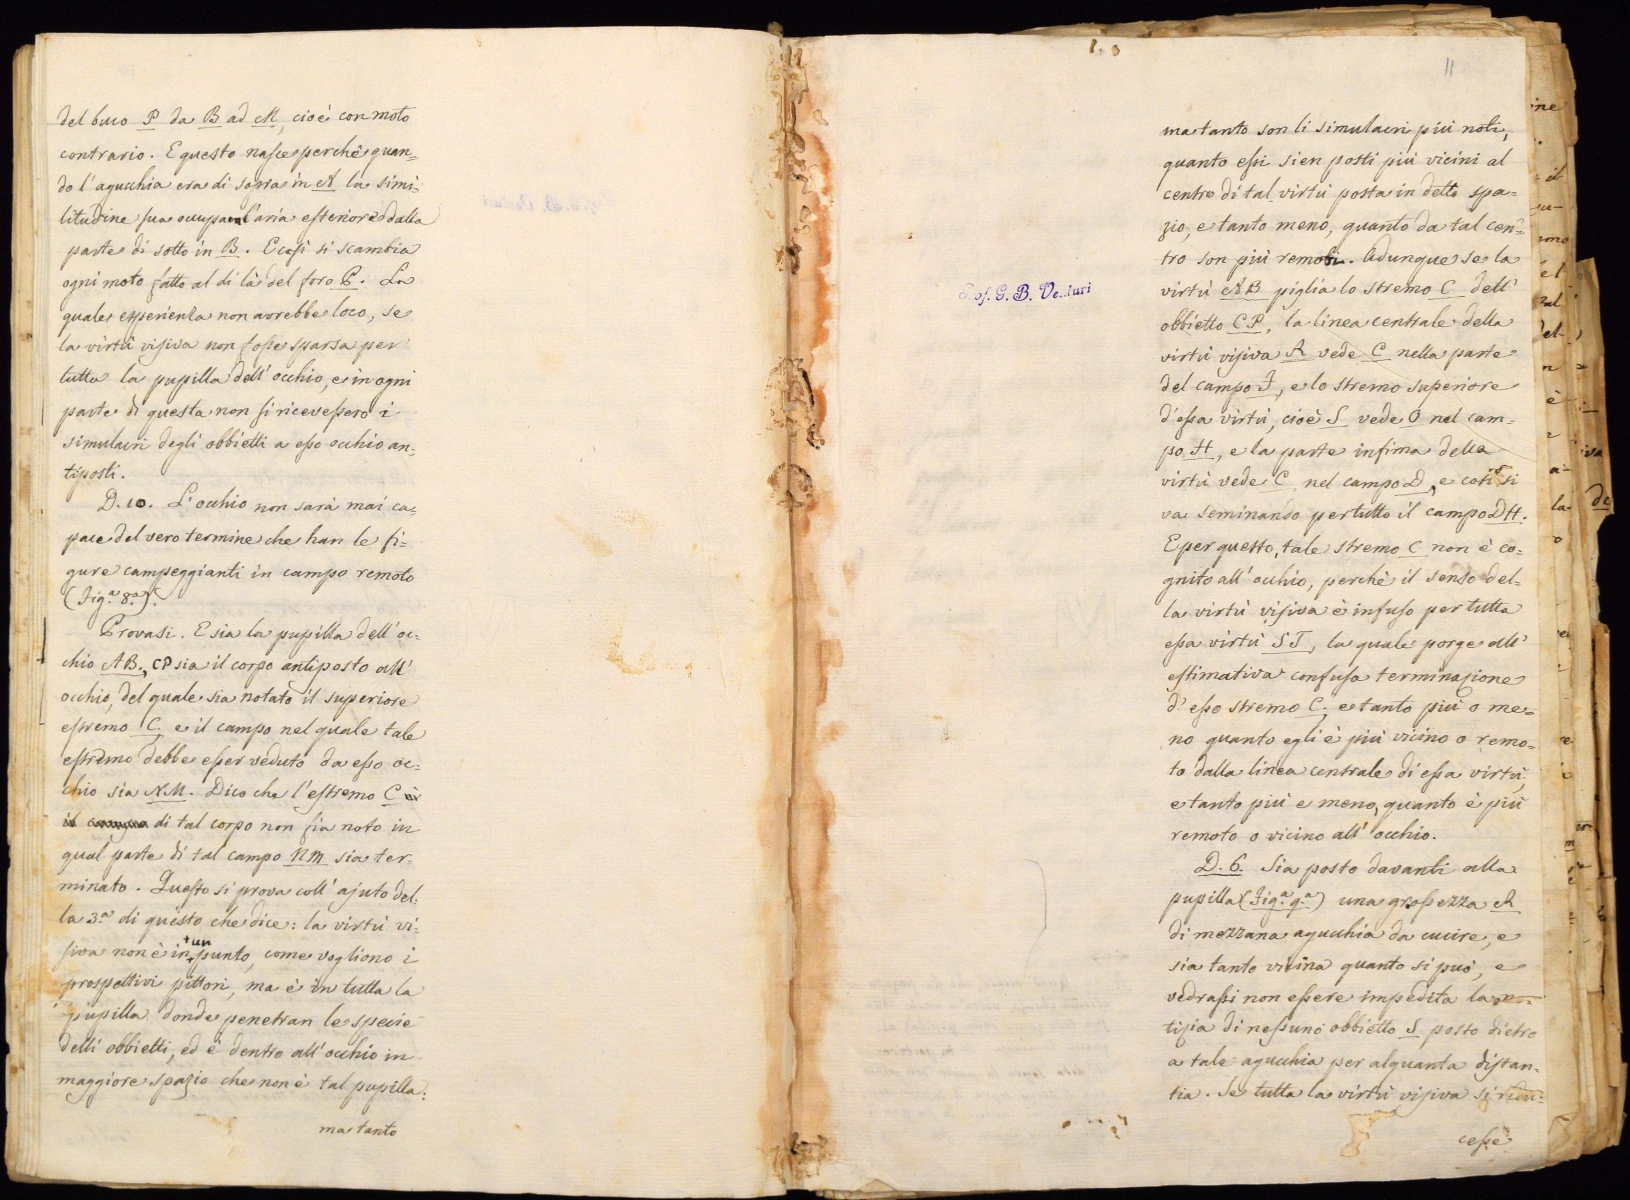 del buco P da B ad M, cioè con moto
contrario. E questo nasce perchè quan=
do l'agucchia era di sopra in A la simi=
litudine sua occupava l'aria esteriore dalla
parte di sotto in B. E così si scambia
ogni moto fatto al di là del foro P. La
quale esperienza non avrebbe loco, se
la virtù visiva non fosse sparsa per
tutta la pupilla dell'occhio, e in ogni
parte di questa non si ricevessero i
simulacri degli obbietti a esso occhio an=
tiposti.
D. 10. L'occhio non sarà mai ca=
pace del vero termine che han le fi=
gure campeggianti in campo remoto
(Fig.a 8.a).
Provasi. E sia la pupilla dell'oc=
chio AB, CP sia il corpo antiposto all'
occhio, del quale sia notato il superiore
estremo C, e il campo nel quale tale
estremo debbe esser veduto da esso oc=
chio sia NM. Dico che l'estremo C
di tal corpo non fia noto in
qual parte di tal campo NM sia ter=
minato. Questo si prova coll'ajuto del=
la 3.a di questo che dice: la virtù vi=
siva non è in un punto, come vogliono i
prospettivi pittori, ma è in tutta la
pupilla donde penetran le specie
delli obbietti, ed è dentro all'occhio in
maggiore spazio che non è tal pupilla:
ma tanto
11
ma tanto son li simulacri più noti,
quanto essi sien posti più vicini al
centro di tal virtù posta in detto spa=
zio, e tanto meno, quanto da tal cen=
tro son più remoti. Adunque se la
virtù AB piglia lo stremo C dell'
obbietto CP, la linea centrale della
virtù visiva R vede C nella parte
del campo F, e lo stremo superiore
d'essa virtù, cioè S vede O nel cam=
po H, e la parte infima della
virtù vede C nel campo D, e così si
va seminando per tutto il campo DH.
E per questo, tale stremo C non è co=
gnito all'occhio, perchè il senso del=
la virtù visiva è infuso per tutta
essa virtù ST, la quale porge all'
estimativa confusa terminazione
d'esso stremo C, e tanto più o me=
no quanto egli è più vicino o remo=
to dalla linea centrale di essa virtù,
e tanto più e meno, quanto è più
remoto o vicino all'occhio.
D. 6. Sia posto davanti alla
pupilla (Fig.a 9.a) una grossezza R
di mezzana agucchia da cucire, e
sia tanto vicina quanto si può, e
vedrassi non essere impedita la no=
tizia di nessuno obbietto S posto dietro
a tale agucchia per alquanta distan=
tia. Se tutta la virtù visiva si ridu=
cesse
Prof. G. B. Venturi